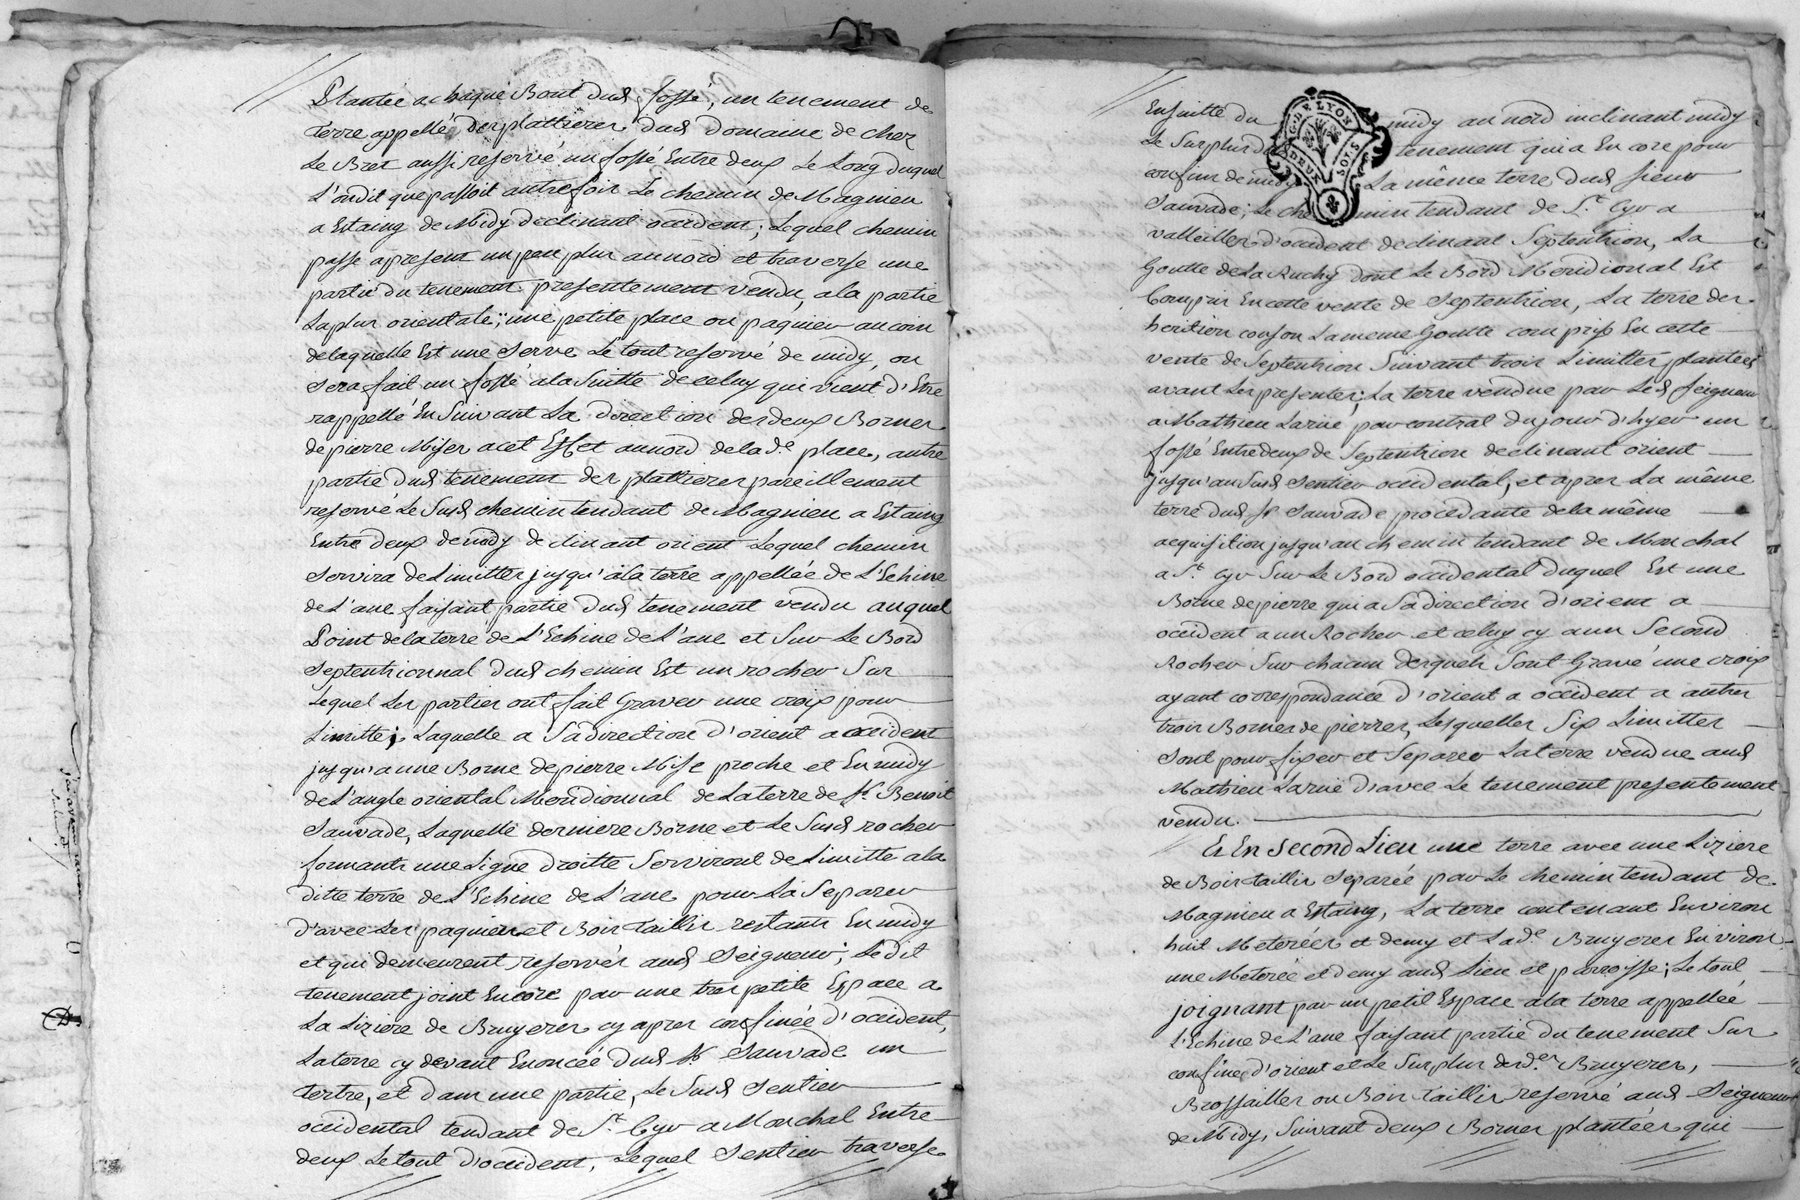 Plantée a chaque Bout dud fossé, un tenement de
terre appellé des plattieres dud domaine de chez
Le Bret aussi reservé un fossé Entre deux Le Long duquel
L'on dit que passoit autrefois Le chemin de Magnieu
a Estaing de Midy declinant occident; Lequel chemin
passe apresent un peu plus au nord et traverse une
partie du tenement presentement vendu, a la partie
La plus orientale; une petite place ou paquier au coin
de laquelle Est une Serve Le tout reservé de midy, ou
sera fait un fossé a la Suitte de celuy qui vient d'Etre
rappellé En Suivant La direction des deux Bornes
de pierre Mises a cet Effet au nord de la d.e place, autre
partie dud tenement des plattieres pareillement
reservé Le Susd chemin tendant de Magnieu a Estaing
Entre deux de midy declinant orient Lequel chemin
servira de Limittes jusqu'a la terre appellée de L'Echine
de L'ane faisant partie dud tenement vendu auquel
Point de la terre de L'Echine de L'ane et Sur Le Bord
Septentrionnal dud chemin Est un rocher Sur
Lequel Les parties ont fait Graver une croix pour
Limitte; Laquelle a Sa direction d'orient a occident
jusqu'a une Borne de pierre Mise proche et En midy
de L'angle oriental Meridionnal de La terre de Sr Benoit
Sauvade, Laquelle derniere Borne et Le Susd rocher
formants une Ligne droitte Serviront de Limitte a la
ditte terre de L'Echine de L'ane pour La Separer
d'avec Les paquiers et Bois taillis restants En midy
et qui demeurent reservés aud Seigneur; Le dit
tenement joint Encore par une tres petite Espace a
La Liziere de Bruyeres cy apres confinée d'occident,
La terre cy devant Enoncée dud Sr Sauvade un
tertre, et dans une partie, Le Susd Sentier
occidental tendant de St Cyr a Monchal Entre
deux Le tout d'occident, Lequel Sentier traverse
Ensuitte du midy au nord inclinant midy
Le Surplus du tenement qui a Encore pour
confins de midy La même terre dud Sieur
Sauvade; Le chemin tendant de St Cyr a
Valleilles d'occident declinant Septentrion, La
Goutte de La Ruchy dont Le Bord Meridional Est
Compris En cette vente de Septentrion, La terre des
La meme Goutte compris En cette
vente de Septentrion Suivant trois Limittes plantées
avant Les presentes; La terre vendue par Led Seigneur
a Mathieu Larue par contrat du jour d'hyer un
fossé Entre deux de Septentrion declinant orient
jusqu'au Susd Sentier occidental, et apres La même
terre dud Sr Sauvade procedante de la même
acquisition jusqu'au chemin tendant de Monchal
a St Cyr Sur Le Bord occidental duquel Est une
Borne de pierre qui a Sa direction d'orient a
occident a un Rocher et celuy cy a un Second
Rocher Sur chacun desquels Sont Gravé une croix
ayant correspondance d'orient a occident a autres
trois Bornes de pierres, Lesquelles Six Limittes
Sont pour fixer et Separer La terre vendue aud
Mathieu Larue d'avec Le tenement presentement
vendu.
Et En Second Lieu une terre avec une Liziere
de Bois taillis Separée par Le chemin tendant de
Magnieu a Estaing, La terre contenant Environ
huit Meterées et demy et La d.e Bruyeres Environ
une Meterée et demy aud Lieu et parroisse; Le tout
joignant par un petit Espace a la terre appellée
L'Echine de L'ane faisant partie du tenement Sus
confiné, d'orient et Le Surplus desd.es Bruyeres,
Brossailles ou Bois taillis reservé aud Seigneur
de Midy, Suivant deux Bornes plantées qui
G. DE LYON
DEUX SOLS